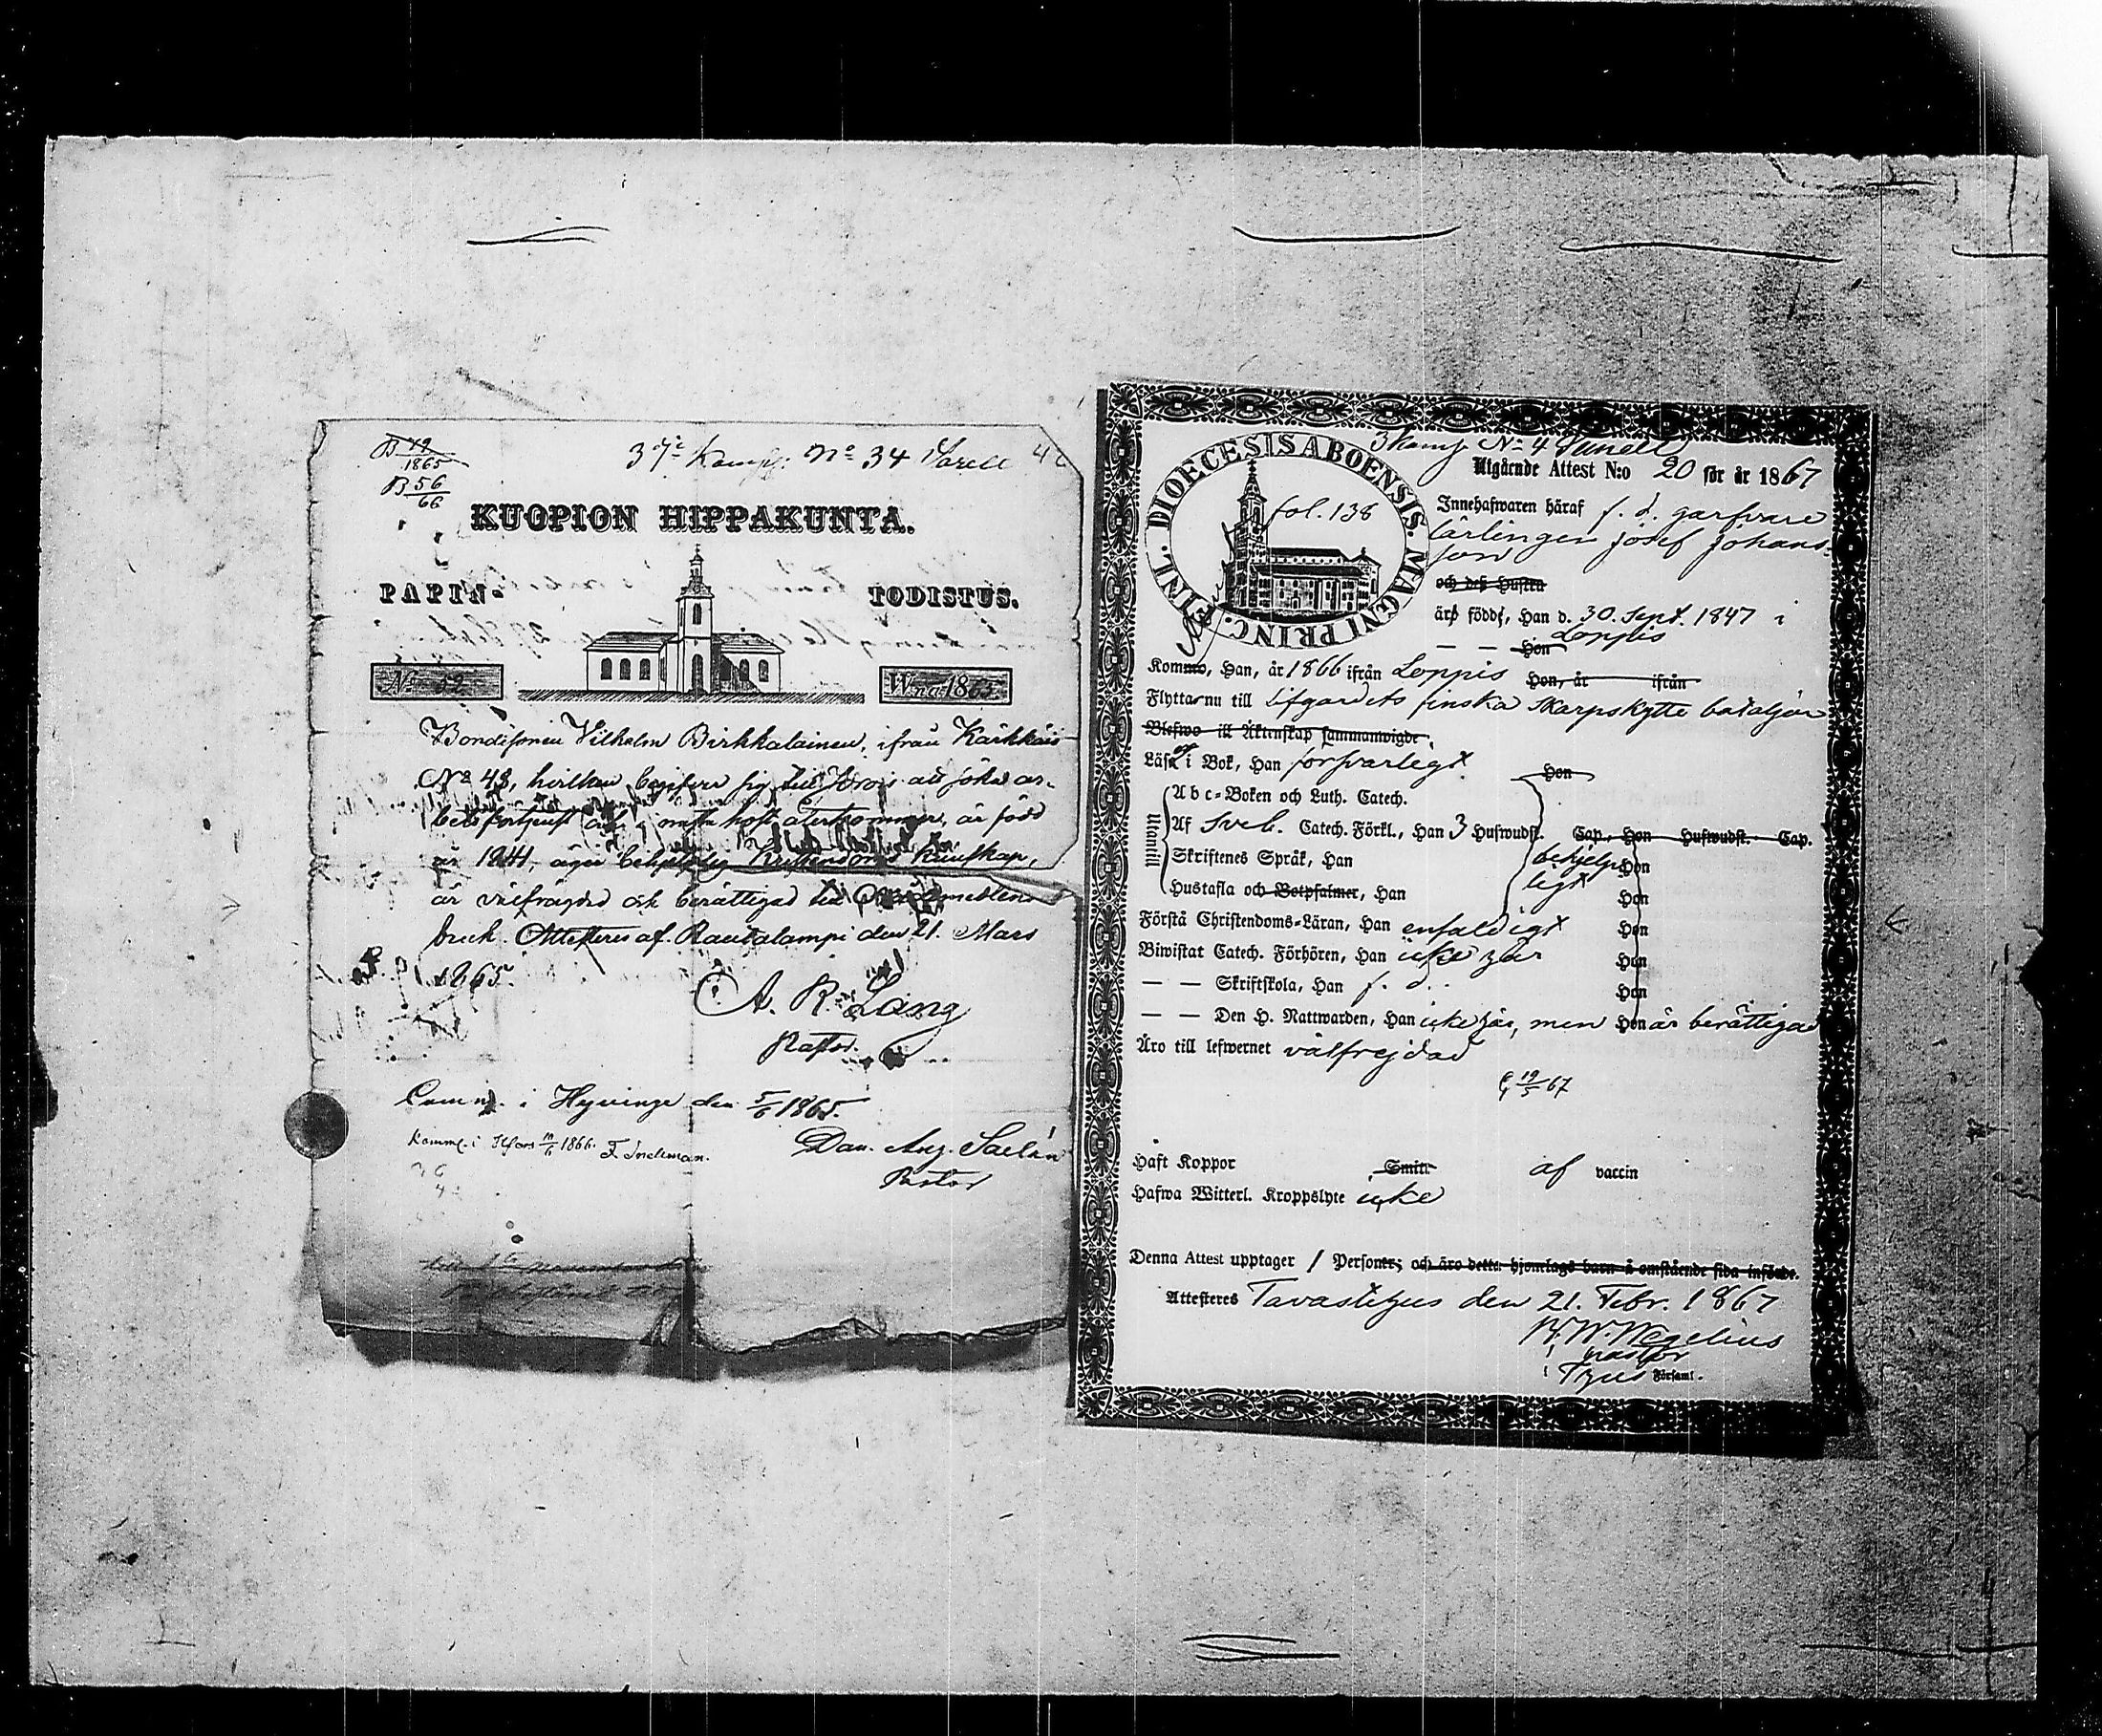 B 49/1865
B 56/66
3dje Komp: No 34 Sarell
KUOPION HIPPAKUNTA.
PAPIN- TODISTUS.
No 52 W:na 1865.
Bondesonen Vilhelm Birkkalainen, ifrån Kärkkäis
No 43, hvilken begifver sig till att söka ar-
betsförtjenst och i höst återkommer, är född
år 1841, äger behjelplig Kristendoms kunskap,
är välfräjdad och berättigad till Nådemedlens
bruk. Attesteras af. Rautalampi den 21. Mars
1865.
A. R. Lang
Pastor.
i Hyvinge den 5/6 1865.
Dan. Aug. Saelán
Pastor
Komme. i Hfors 10/6 1866.
3 Komp No 4 Sunell
Utgående Attest N:o 20 för år 1867
FINL. DIOECESIS ABOENSIS. MAGNI PRINC.
fol. 138
Innehafwaren häraf f. d. garfvare
lärlingen Josef Johans-
son
och deß Hustru
äro födde, Han d. 30. Sept. 1847 i
— — Hon Loppis
Kommo, Han, år 1866 ifrån Loppis Hon, år ifrån
Flytta nu till Lifgardets finska Skarpskytte bataljon
Blefwo till Äktenskap sammanwigde
Läsa i Bok, Han försvarligt Hon
Utantill
Abc-Boken och Luth. Catech.
Af Sveb. Catech. Förkl., Han 3 Hufwudst. Cap., Hon Hufwudst. Cap.
Skriftenes Språk, Han behjelp- Hon
Hustafla och Botpsalmer, Han ligt Hon
Förstå Christendoms-Läran, Han enfaldigt Hon
Biwistat Catech. Förhören, Han icke här Hon
— — Skriftskola, Han f. d. Hon
— — Den H. Nattwarden, Han icke här, men Hon är berättigad
Äro till lefwernet välfrejdad
19/5 67
Haft Koppor Smitt- af vaccin
Hafwa Witterl. Kroppslyte icke
Denna Attest upptager 1 Personer; och äro detta hjonelags barn å omstående sida införde.
Attesteres Tavastehus den 21. Febr. 1867
K. W. Wegelius
pastor
i Thus Församl.